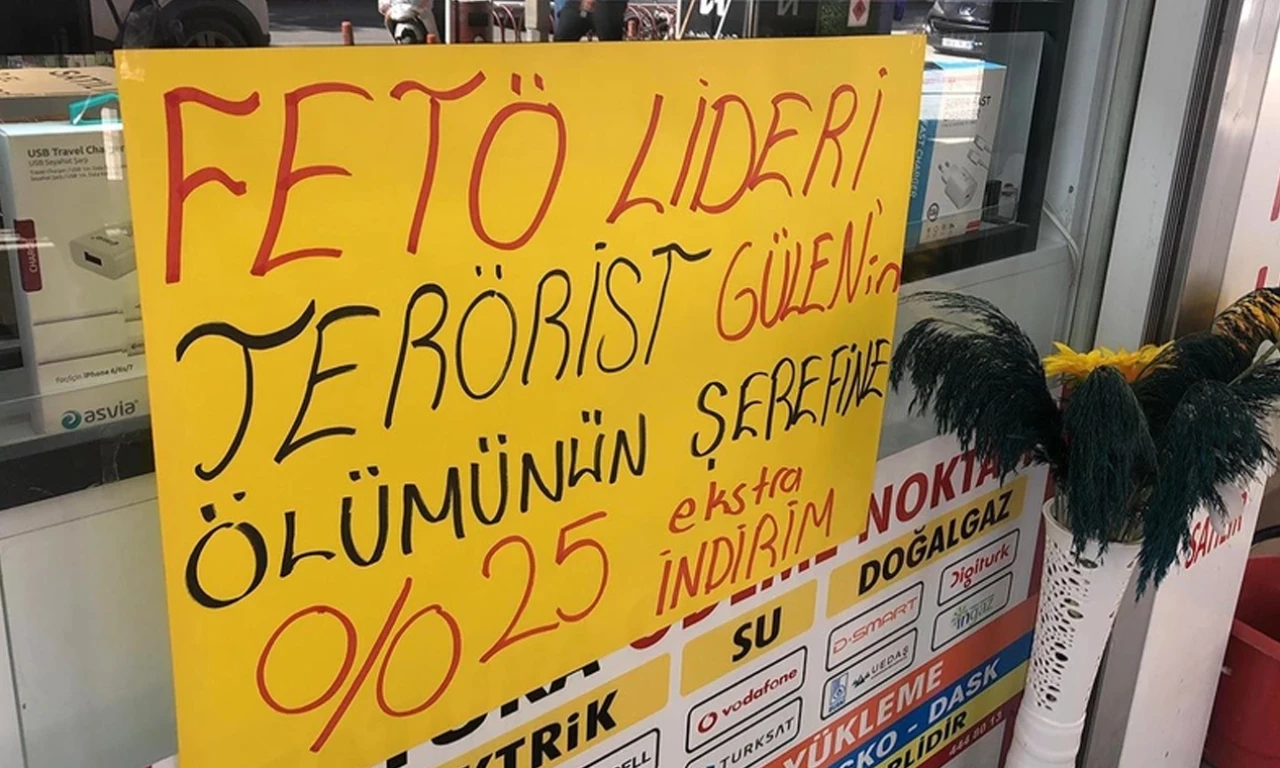 FETÖ LİDERİ
TERÖRİST GÜLENin
ÖLÜMÜNÜN ŞEREFİNE
%25 ekstra
İNDİRİM
USB Travel Charger
USB Seyahat Şarjı
asvia
FAST CHARGER
NOKTA
SU
DOĞALGAZ
Digiturk
D-SMART
ingaz
vodafone
UEDAŞ
TURKSAT
YÜKLEME
DASK
444 80 13